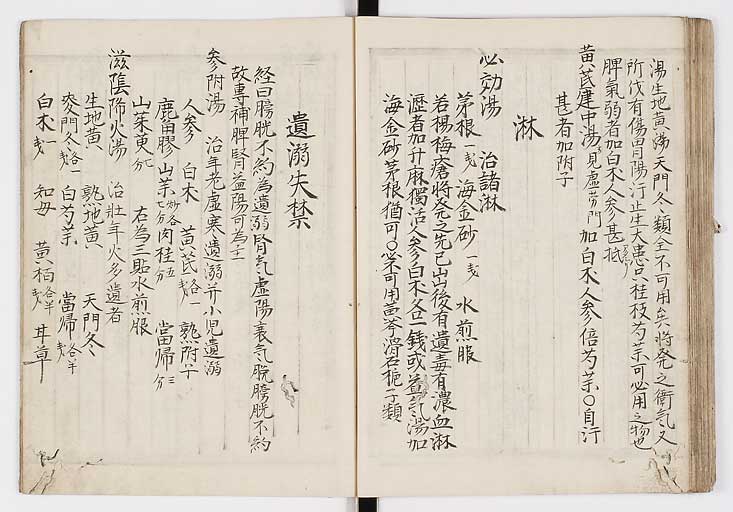 湯生地黄湯天門冬類全不可用矣将発之衛気又
所伐有傷胃陽汗止生大患只桂枝芍薬可必用之物也
脾気弱者加白朮人参甚抵
黄芪建中湯見虚労門加白朮人参倍芍薬〇自汗
甚者加附子
淋
必効湯 治諸淋
茅根一戔海金砂一戔 水煎服
若楊梅瘡将発之先已出後有遺毒有濃血淋
瀝者加升麻獨活人参白朮各一銭或益気湯加
海金砂茅根猶可〇必不可用黄芩滑石梔子類
遺溺失禁
経曰膀胱不約為遺溺腎気虚陽衰気脱膀胱不約
故専補脾腎益陽可為主
参附湯 治年老虚寒遺溺并小児遺溺
人参 白朮 黄芪各一戔 熟附子
鹿角膠 山薬炒各七分肉桂五分 當帰三分
山茱萸二分 右為三貼水煎服
滋陰降火湯 治壮年火多遺者
生地黄 熟地黄 天門冬
麥門冬各一戔白芍薬 當帰各半戔
白朮一戔 知母 黄栢各半戔 甘草